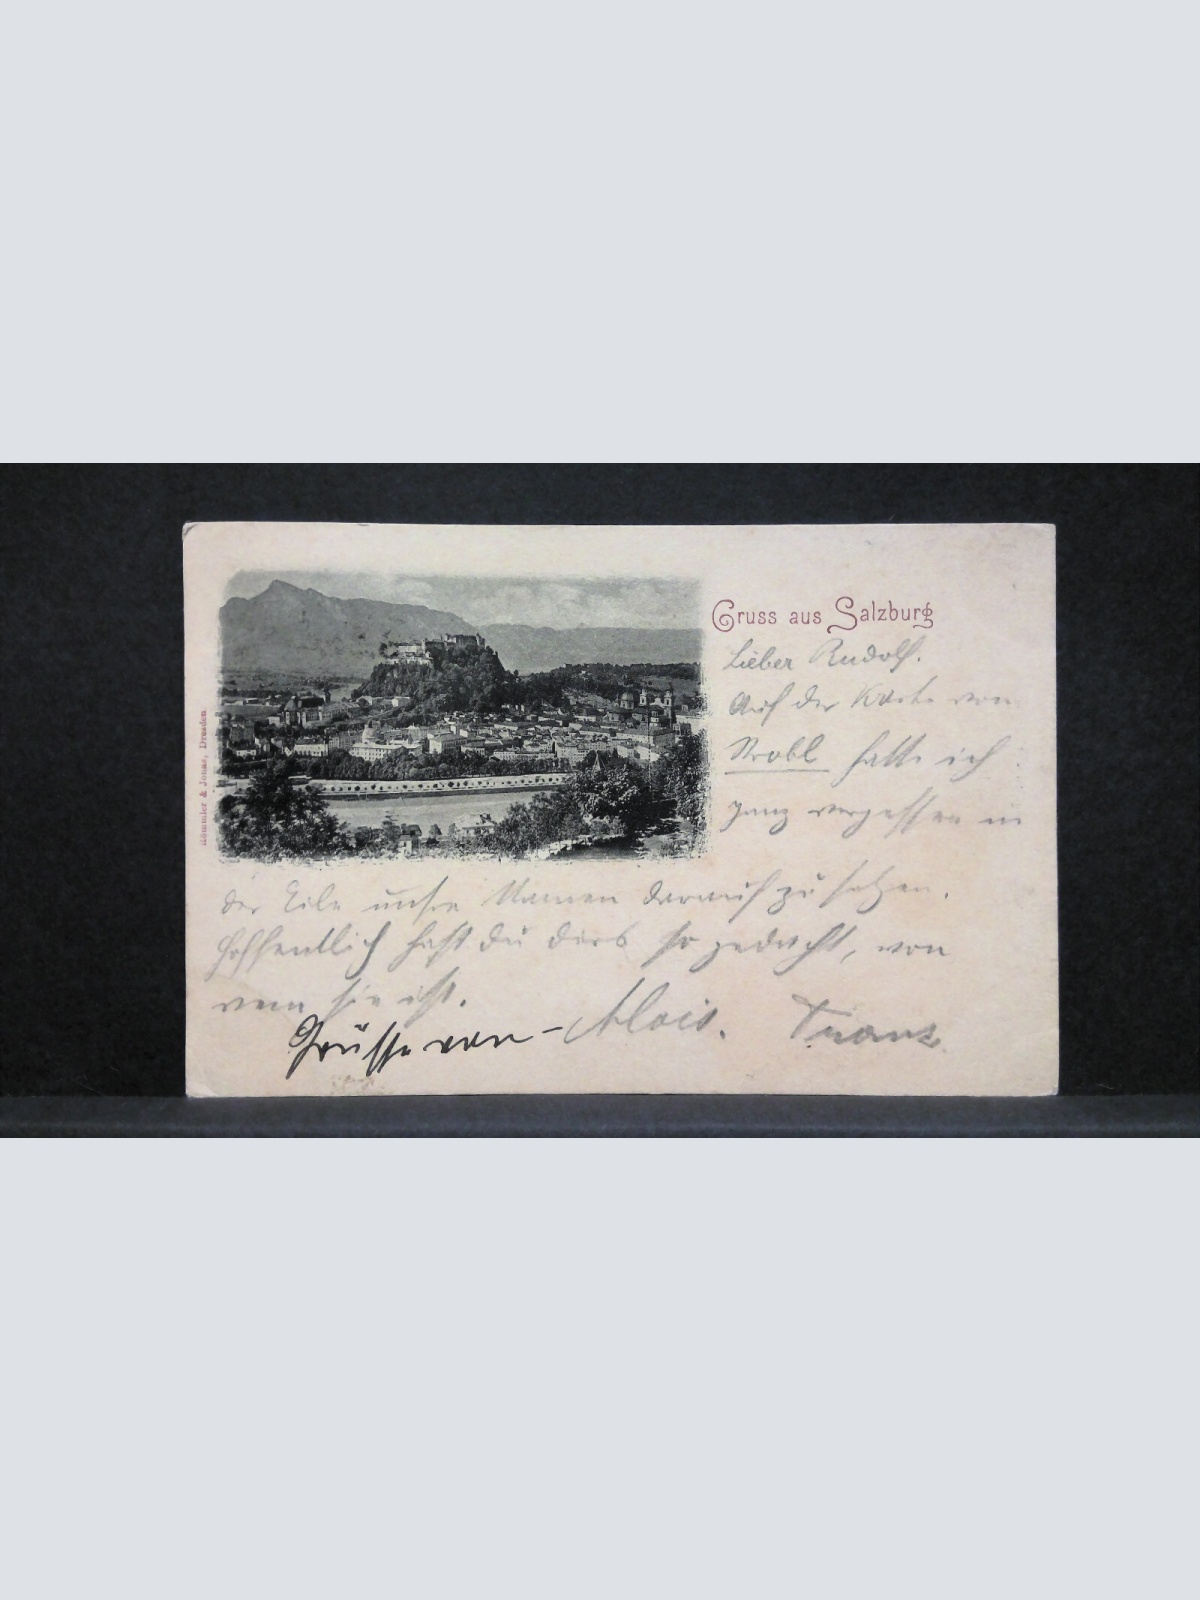 Gruss aus Salzburg
Lieber Rudolf.
Auf der Karte von
Strobl hatte ich
ganz vergessen in
der Eile unsre Namen darauf zu setzen.
Hoffentlich hast du dirs so gedacht, von
wem sie ist.
Grüsse von - Alois. Franz.
Römmler & Jonas, Dresden